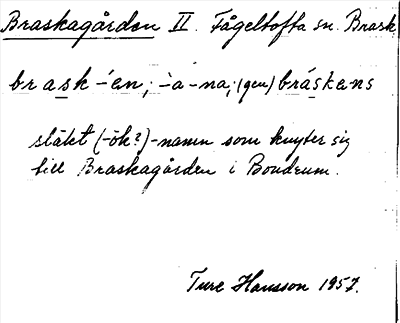 Braskagården II. Fågeltofta sn. Brask
brask -´en; -`a-na; (gen) bráskens
släkt (-ök?)-namn som knyter sig
till Braskagården i Bondrum.
Ture Hansson 1957.